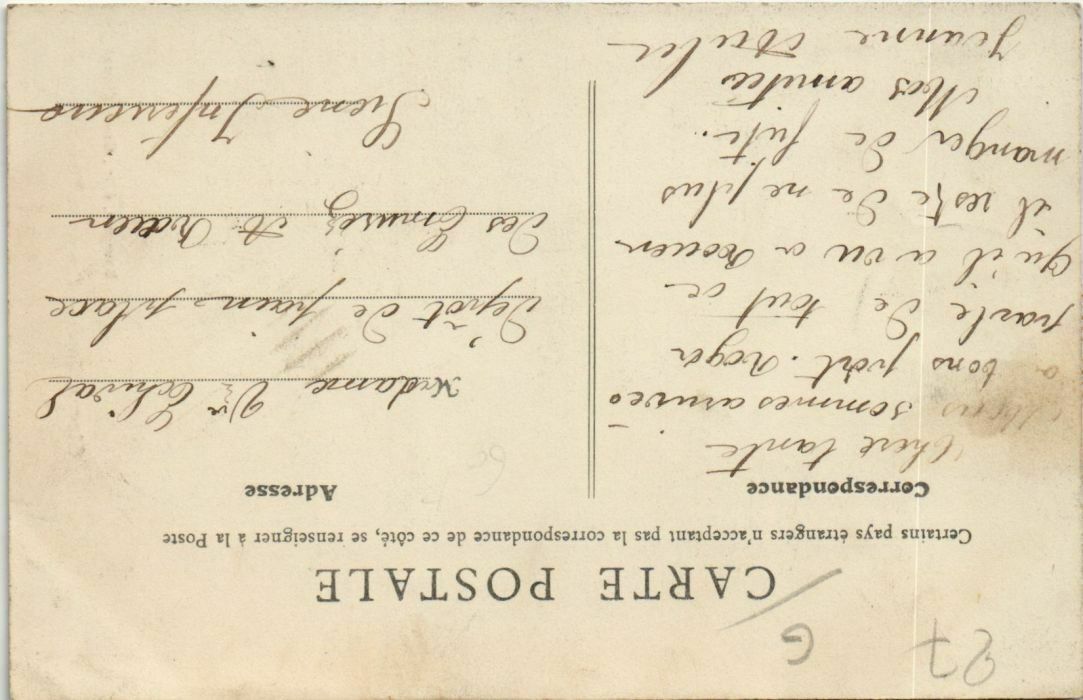 27
G
CARTE POSTALE
Certains pays étrangers n'acceptant pas la correspondance de ce côté, se renseigner à la Poste
Correspondance
Chere tante
Nous sommes arrivés
a bons port. Roger
parle de tout ce
qu'il a vu a Rouen
il reste de ne plus
manger de
Mes amitiés
Jeanne
Adresse
Madame Vve
Dépôt de pain place
des Emurés à Rouen
Seine Inferieure